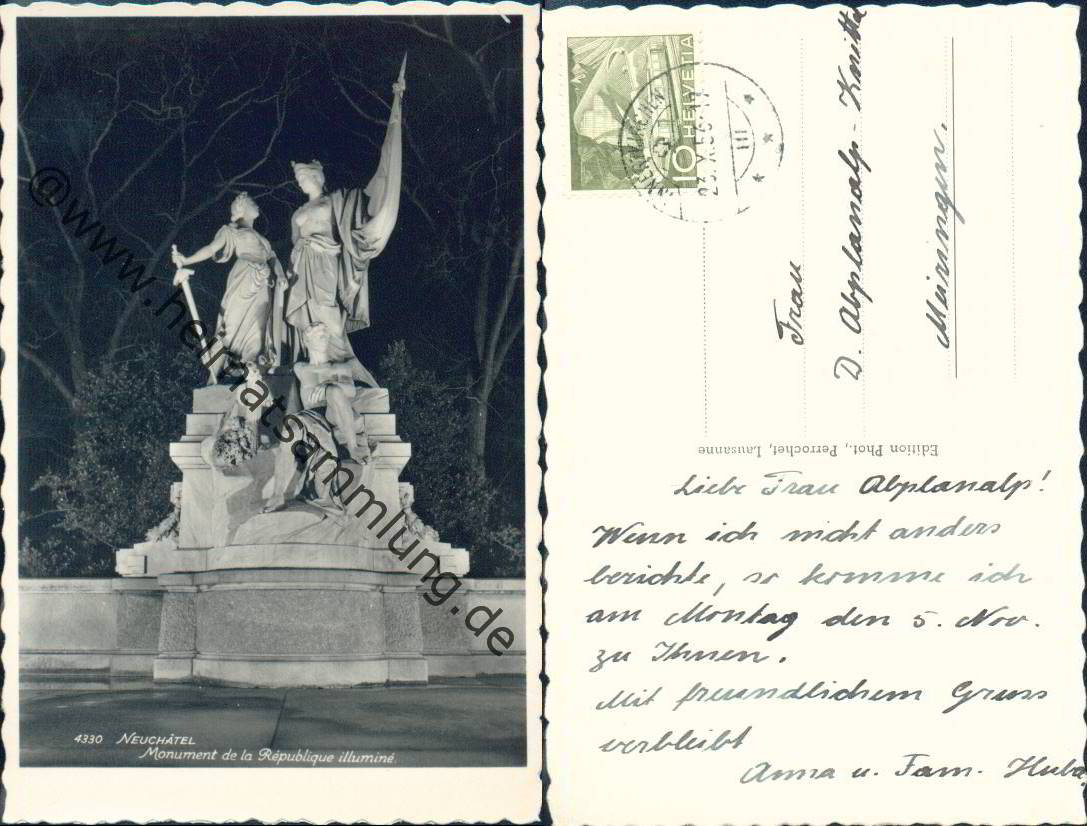 4330 NEUCHÂTEL
Monument de la République illuminé.
@www.heimatsammlung.de
10 HELVETIA
III
Frau
D. Abplanalp-
Meiringen.
Edition Phot., Perrochet, Lausanne
Liebe Frau Abplanalp!
Wenn ich nicht anders
berichte, so komme ich
am Montag den 5. Nov.
zu Ihnen.
Mit freundlichem Gruss
verbleibt
Anna u. Fam.